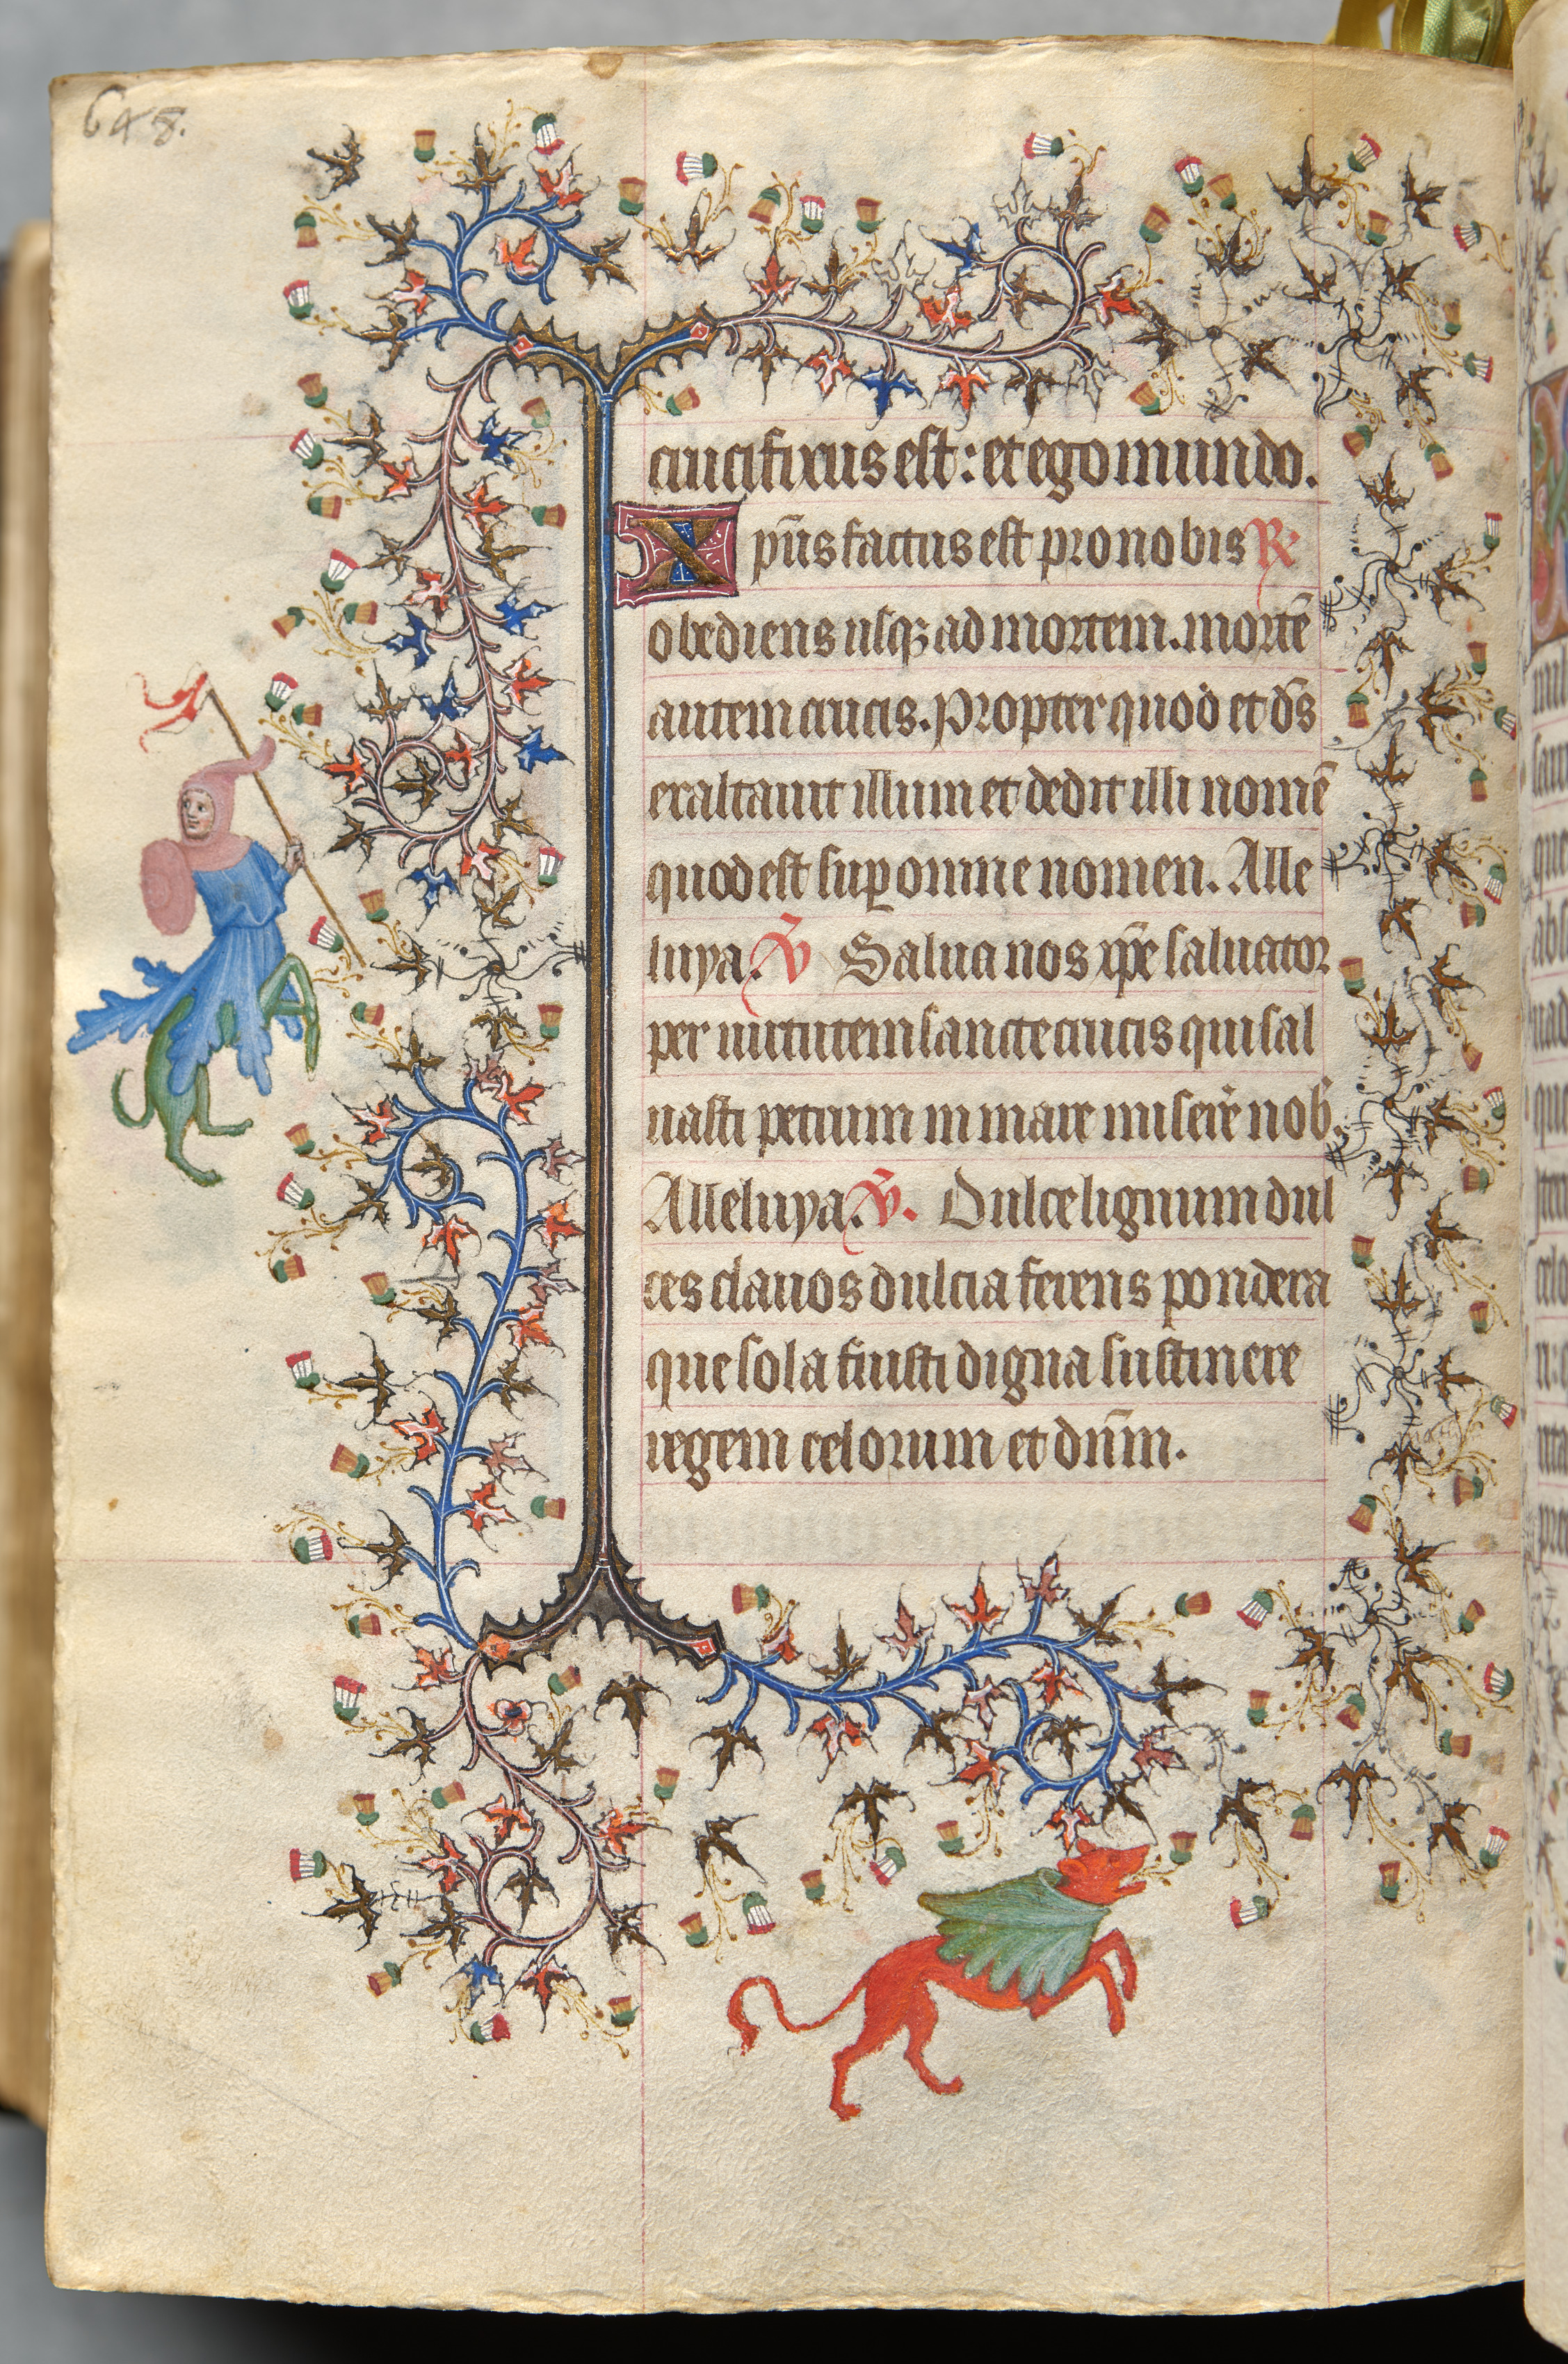 648.
crucifixus est: et ego mundo.
Xpūs factus est pro nobis R
obediens usqꝫ ad mortem. mortē
autem crucis. Propter quod et ds̄
exaltavit illum et dedit illi nomē
quod est suꝑ omne nomen. Alle
luya. V̄ Salua nos xp̄e saluator
per uirtutem sancte crucis qui sal
uasti petrum in mare miserē nob̄.
Alleluya. V̄. Dulce lignum dul
ces clauos dulcia ferens pondera
que sola fuisti digna sustinere
regem celorum et dn̄m.